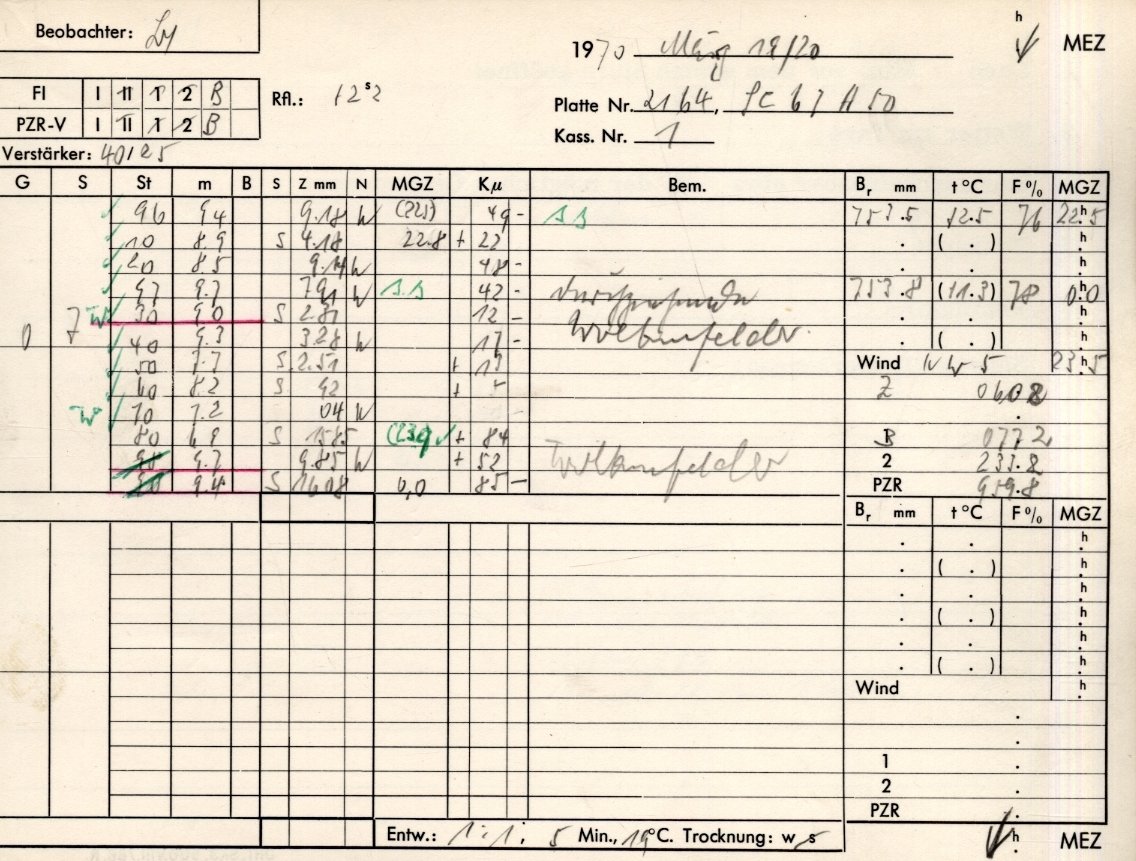 Beobachter:
1970 März 19/20 h MEZ
FI I II 1 2 B
Rfl.: 12ˢ2
PZR-V I II 1 2 B
Platte Nr. 2164,
Kass. Nr. 1
Verstärker: 40/25
G S St m B S Z mm N MGZ Kμ Bem. Bᵣ mm t °C F % MGZ
96 9.4 9.18 W 49 - s s 753.5 12.5 76 22ʰ.5
10 8.9 S 4.18 22.8 + 22 . ( . ) h.
20 8.5 9.14 W 48 - . h.
97 9.7 W s.s 42 - durchziehende 753.8 (11.3) 78 0.0
W 30 9.0 S 2.81 12 - Wolkenfelder . h.
0 7 40 9.3 3.28 W 17 - . ( . ) h.
50 7.7 S 2.51 + Wind NW 5 23ʰ.5
60 8.2 S 92 + 5 Z
W 70 7.2 04 W - .
80 6.9 S 15.85 + 84 B 077.2
9.7 9.85 W + 52 Wolkenfelder 2 233.2
9.4 S 16.08 0,0 85 - PZR 959.8
Bᵣ mm t °C F % MGZ
. . h.
. ( . ) h.
. . h.
. ( . ) h.
. . h.
. ( . ) h.
Wind h.
.
.
1 .
2 .
PZR .
Entw.: 1:1; 5 Min., 19°C. Trocknung: w s h. MEZ